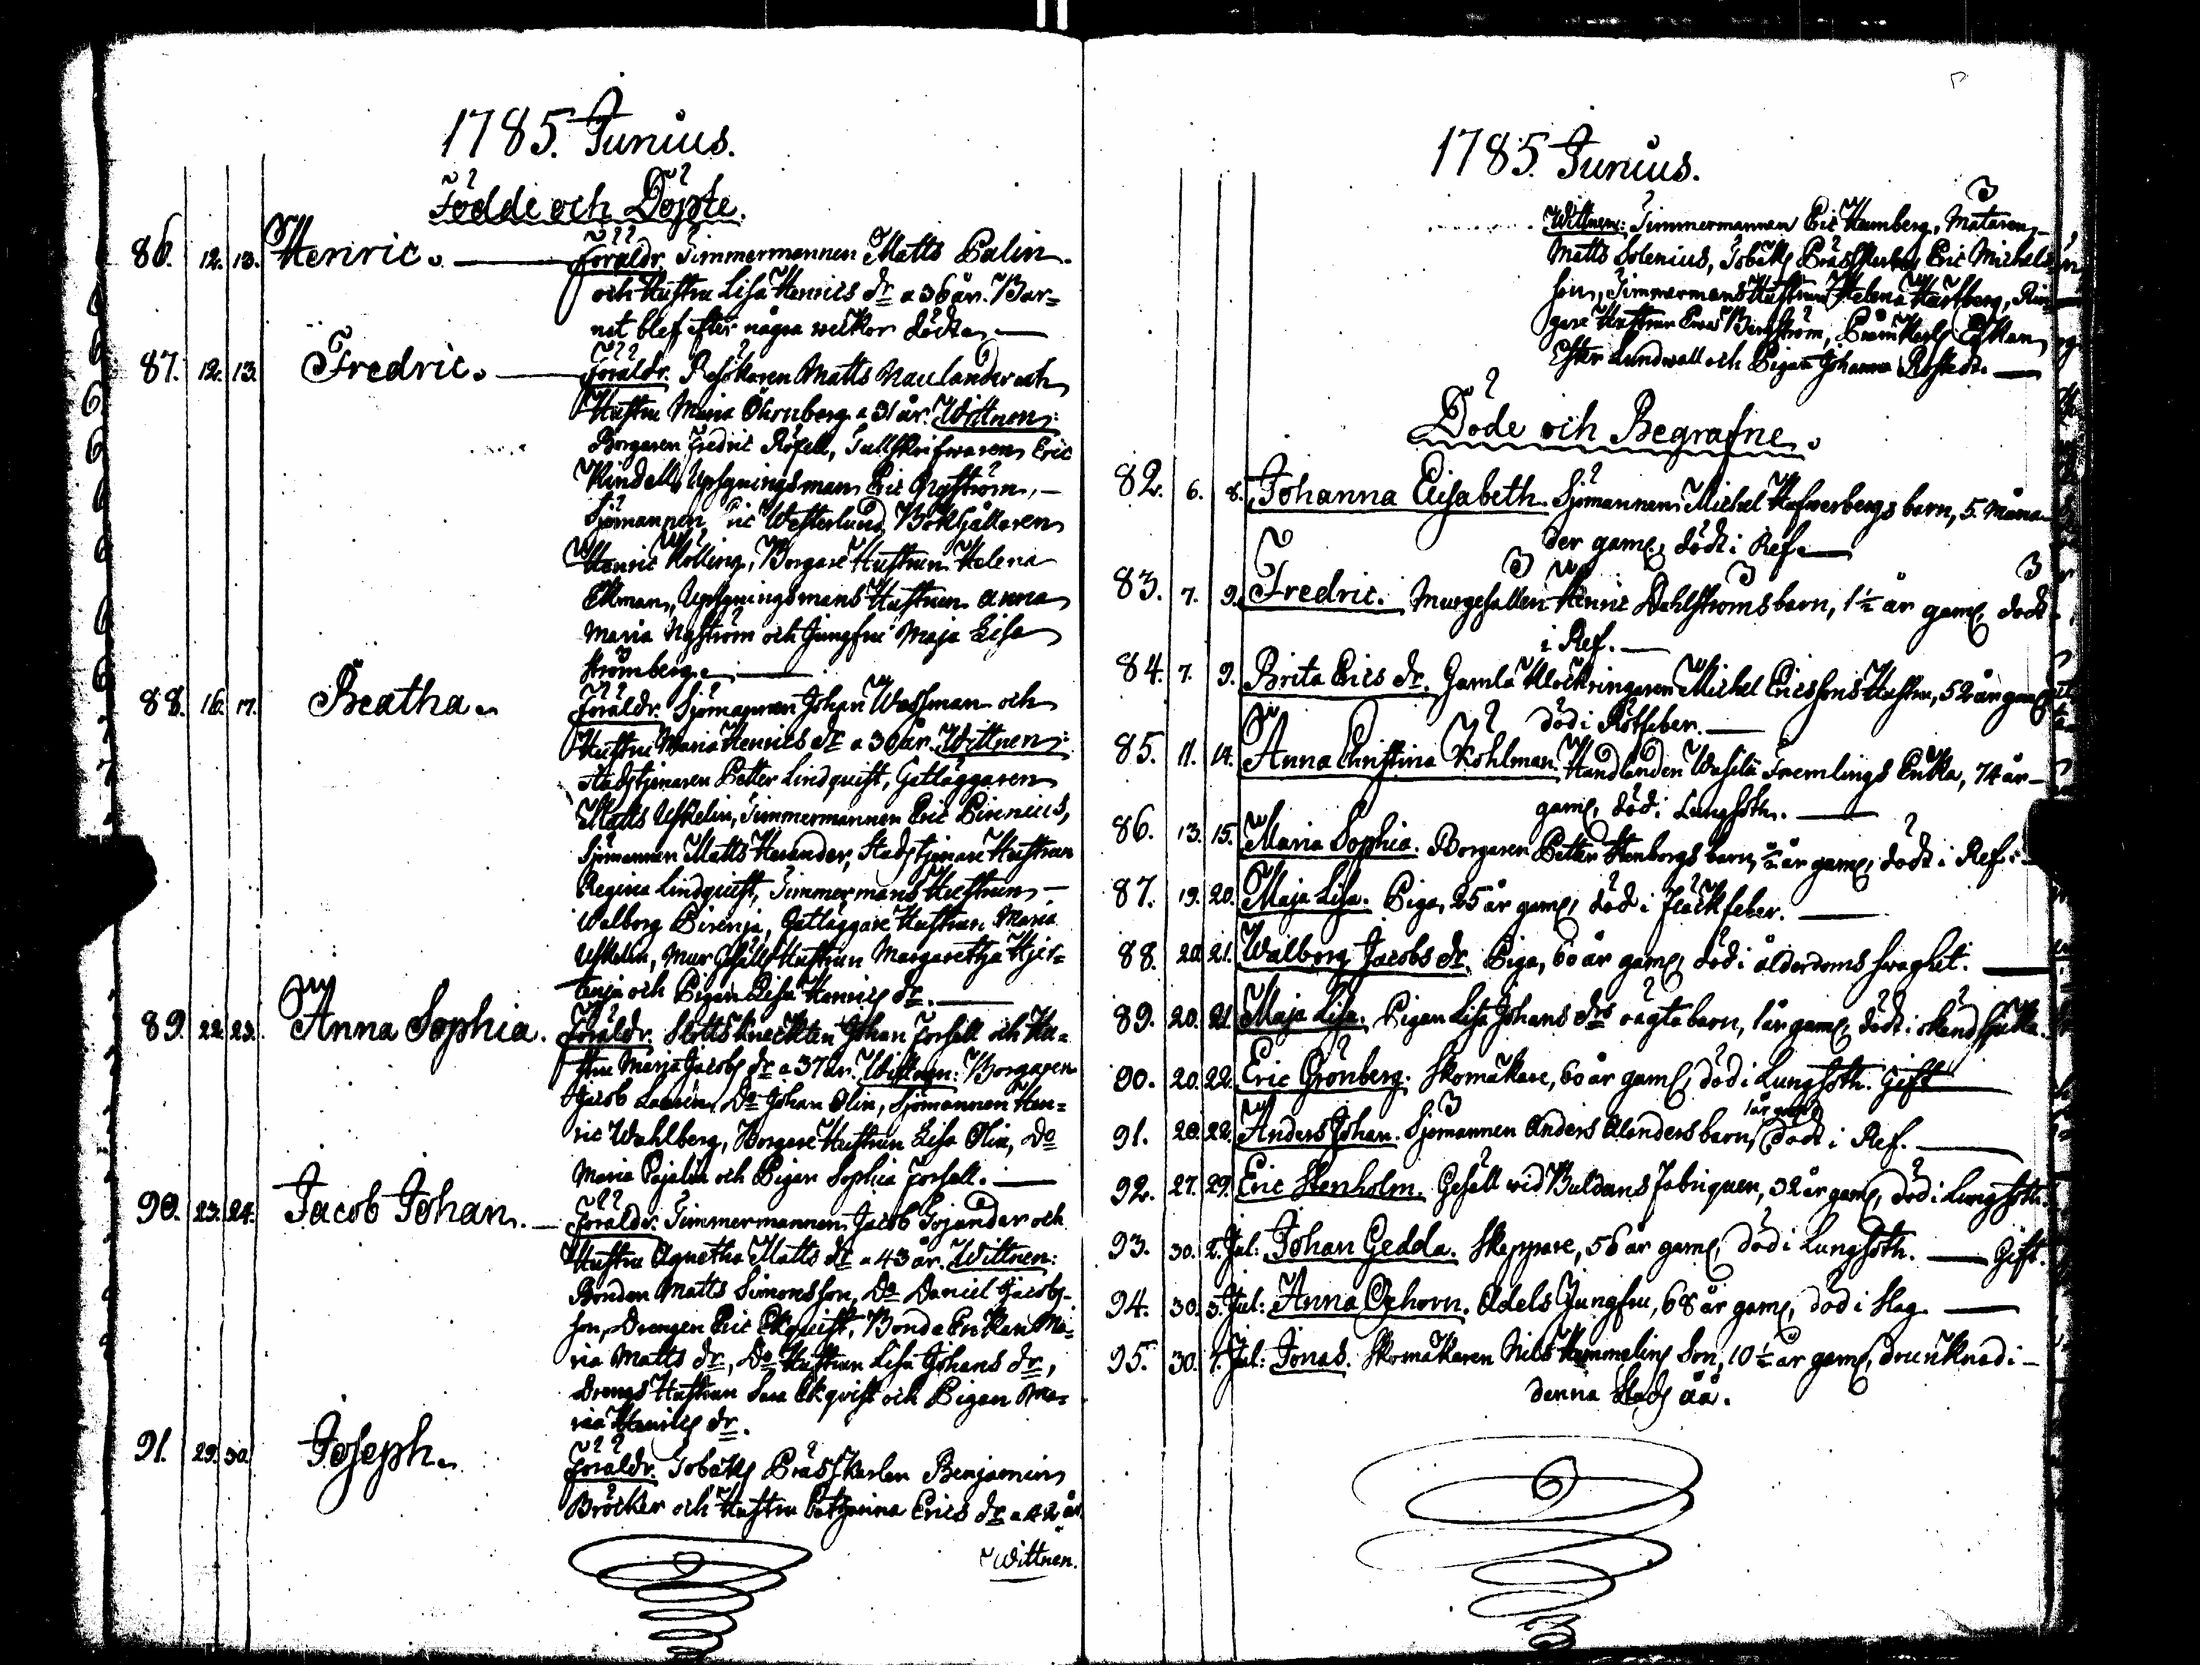 1785. Junius.
Födde och Döpte.
86. 12. 13. Henric. Föräldr. Timmermannen Matts Palin
och Hustru Lisa Henrics dr a 36 år. Bar=
net blef efter några weckor dödt.
87. 12. 13. Fredric. Föräldr. Matts Naulander och
Hustru Maria Öhrnberg a 31 år. Wittnen:
Borgaren Fredric Rosell, Tullskrifwaren Eric
Kindell, Upsyningsman Eric Nyström,
Sjömannen Eric Westerlund, Bokhållaren
Henric Molling, Borgare Hustrun Helena
Ekman, Upsyningsmans Hustrun Anna
Maria Nyström och Jungfru Maja Lisa
Strömberg.
88. 16. 17. Beatha. Föräldr. Sjömannen Johan Wassman och
Hustru Maria Henrics dr a 30 år. Wittnen:
Stadstjenaren Petter Lindquist, Gatläggaren
Matts Uskelin, Timmermannen Eric Pirenius,
Sjömannen Matts Herander, Stadstjenare Hustrun
Regina Lindquist, Timmermans Hustrun
Walborg Pirenja, Gatläggare Hustrun Maria
Uskelin, Mur Gesälls Hustrun Margaretha Hjer=
tenja och Pigan Lisa Henrics dr.
89. 22. 23. Anna Sophia. Föräldr. Slottskneckten Johan Forsell och Hu=
stru Maria Jacobs dr a 37 år. Wittnen: Borgaren
Jacob Do Johan Olin, Sjömannen Hen=
ric Wahlberg, Borgare Hustrun Lisa Olin, Do
Maria Pajalin och Pigan Sophia Forsell.
90. 23. 24. Jacob Johan. Föräldr. Timmermannen Jacob Gojander och
Hustru Agnetha Matts dr a 43 år. Wittnen:
Bonden Matts Simonsson, Do Daniel Jacobs=
son, Drengen Eric Ekquist, Bonde Enkan Ma=
ria Matts dr, Do Hustrun Lisa Johans dr,
Drengs Hustrun Sara Ekqvist och Pigan Ma=
ria Henrics dr.
91. 29. 30. Joseph. Föräldr. Tobaks Präss Karlen Benjamin
Bröcker och Hustru Catharina Erics dr a 42 år
Wittnen.
1785. Junius.
Wittnen: Timmermannen Eric Hamberg, Mätaren
Matts Solenius, Tobaks Präss Karlen Eric Michels
son, Timmermans Hustrun Helena Hartberg, Rin=
gare Hustrun Ewa Bergström, Pråm Karls Enkan
Ester Lundwall och Pigan Johanna Rostedt.
Döde och Begrafne.
82. 6. 8. Johanna Elisabeth. Sjömannen Michel Hafwerbergs barn, 5. måna=
der gaml, dödt i Ref.
83. 7. 9. Fredric. Murgesällen Henric Dahlströms barn, 1½ år gaml, dödt
i Ref.
84. 7. 9. Brita Erics dr. Gamla Klockringaren Michel Ericssons Hustru, 52 år gaml
död i Rötfeber.
85. 11. 14. Anna Christina Kohlman. Handlanden Wasilii Fremlings Enka, 74 år
gaml, död i Lungsot.
86. 13. 15. Maria Sophia. Borgaren Petter Stenborgs barn, ½ år gaml, dödt i Ref.
87. 19. 20. Maja Lisa. Piga, 25 år gaml, död i fläckfeber.
88. 20. 21. Walborg Jacobs dr. Piga, 60 år gaml, död i ålderdoms swaghet.
89. 20. 21. Maja Lisa. Pigan Lisa Johans drs oägta barn, 1 år gaml, dödt i okänd sjuka.
90. 20. 22. Eric Grönberg. Skomakare, 60 år gaml, död i Lungsoth. Gift
91. 20. 22. Anders Johan. Sjömannen Anders Alanders barn, 1 år gaml, dödt i Ref.
92. 27. 29. Eric Stenholm. Gesäll wid Buldans Fabriquen, 32 år gaml, död i Lungsoth.
93. 30. 2. Jul: Johan Gedda. Skeppare, 56 år gaml, död i Lungsoth. Gift.
94. 30. 3. Jul: Anna Ogehorn. Adels Jungfru, 68 år gaml, död i slag
95. 30. 1. Jul: Jonas. Skomakaren Nils Hemmelins Son, 10½ år gaml, drunknad i
denna Stads åå.